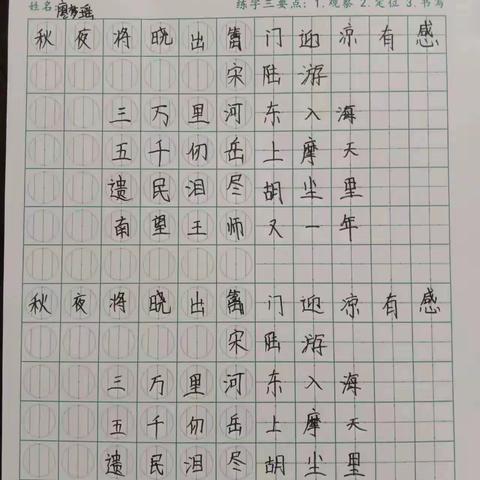 姓名 练字三要点：1.观察 2.定位 3.书写
秋夜将晓出篱门迎凉有感
宋陆游
三万里河东入海
五千仞岳上摩天
遗民泪尽胡尘里
南望王师又一年
秋夜将晓出篱门迎凉有感
宋陆游
三万里河东入海
五千仞岳上摩天
遗民泪尽胡尘里